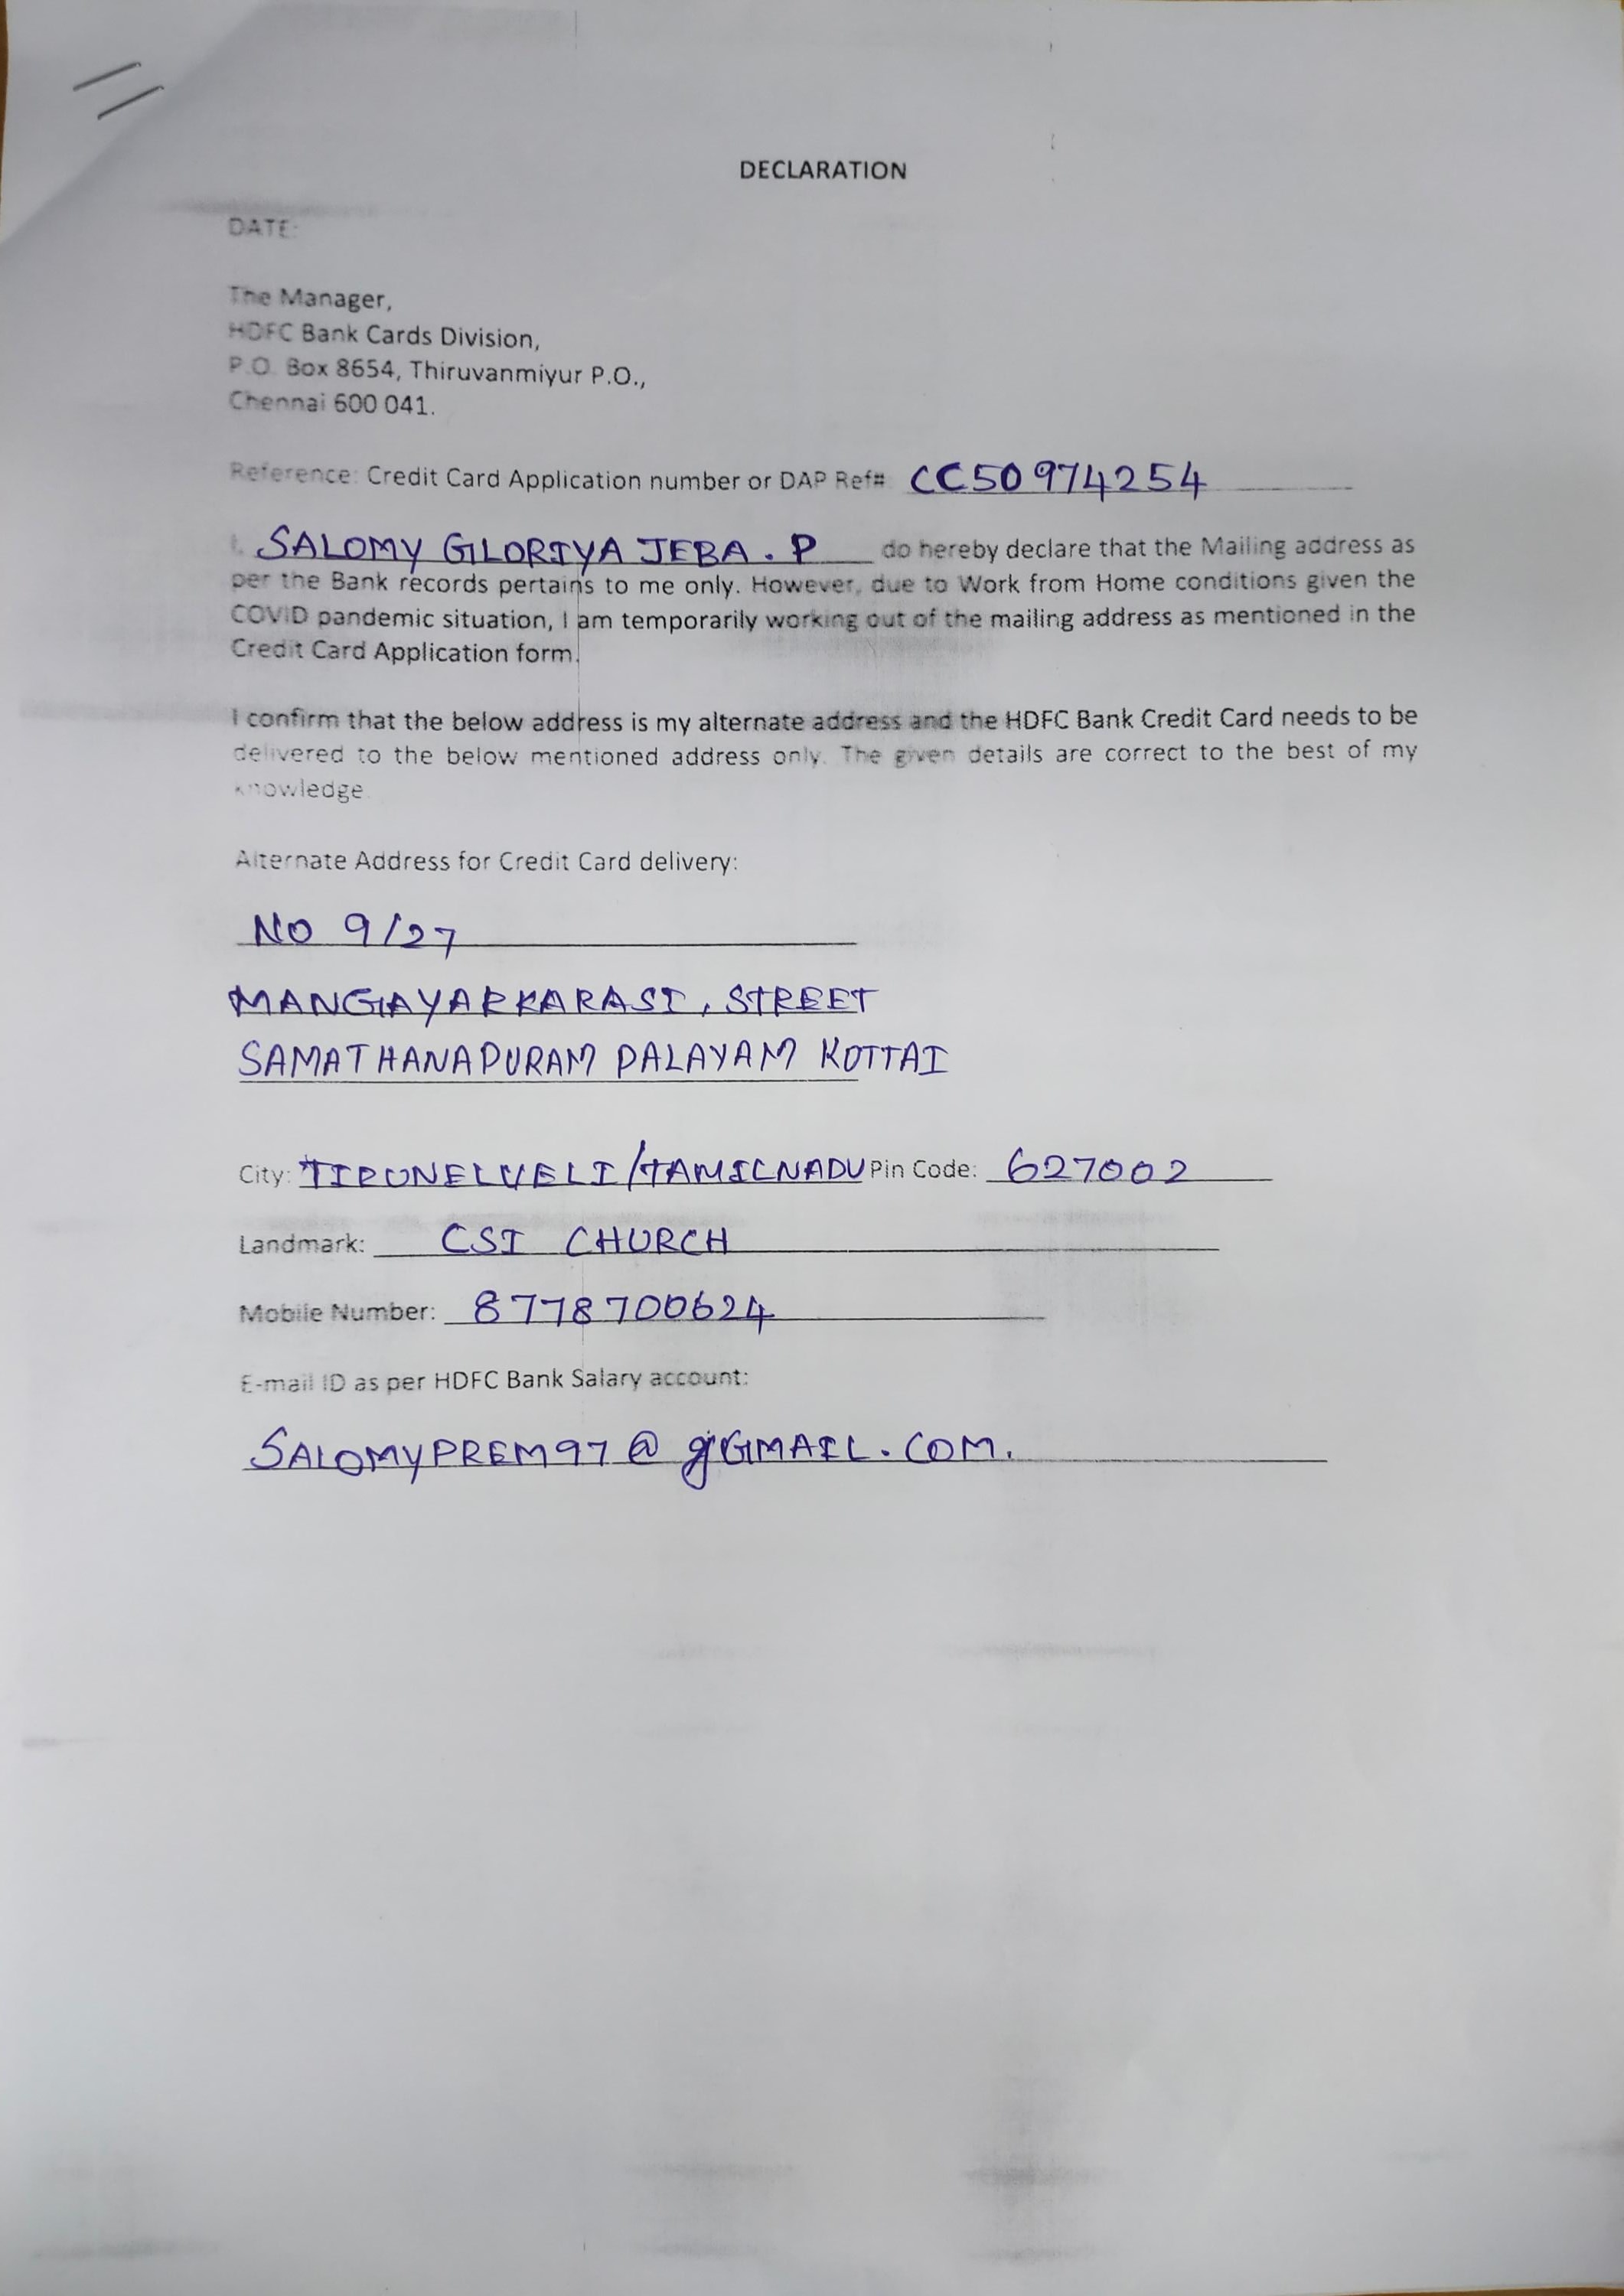 DECLARATION
DATE:
The Manager,
HDFC Bank Cards Division,
P.O. Box 8654, Thiruvanmiyur P.O.,
Chennai 600 041.
Reference: Credit Card Application number or DAP Ref# CC50974254
I, SALOMY GLORIYA JEBA . P do hereby declare that the Mailing address as
per the Bank records pertains to me only. However, due to Work from Home conditions given the
COVID pandemic situation, I am temporarily working out of the mailing address as mentioned in the
Credit Card Application form.
I confirm that the below address is my alternate address and the HDFC Bank Credit Card needs to be
delivered to the below mentioned address only. The given details are correct to the best of my
knowledge.
Alternate Address for Credit Card delivery:
NO 9/27
MANGAYARKARASI, STREET
SAMATHANAPURAM PALAYAM KOTTAI
City: TIRUNELVELI/TAMILNADU Pin Code: 627002
Landmark: CSI CHURCH
Mobile Number: 8778700624
E-mail ID as per HDFC Bank Salary account:
SALOMYPREM97@GMAIL.COM.